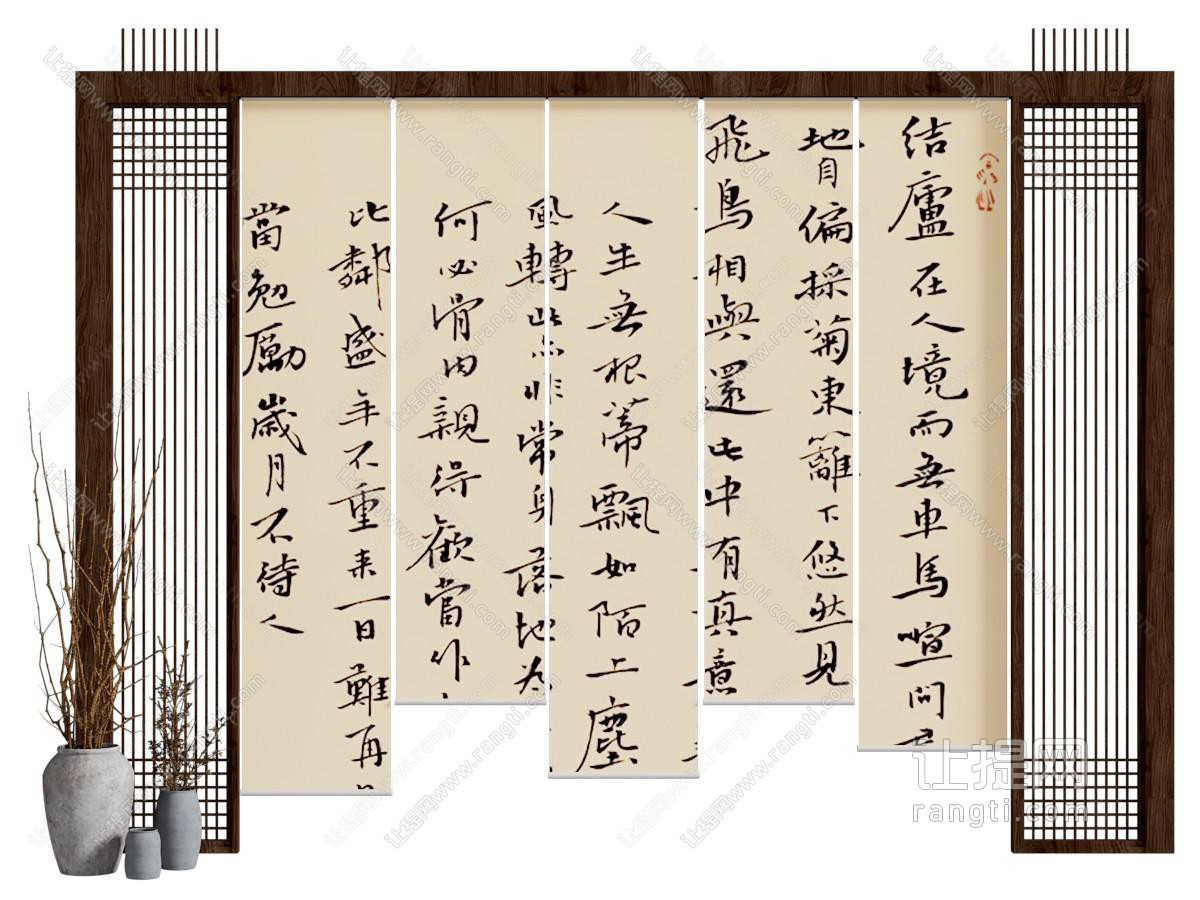 結廬在人境而無車馬喧問
地自偏採菊東籬下悠然見
飛鳥相與還此中有真意
人生無根蒂飄如陌上塵
風轉此亦非常身落地為
何必骨肉親得歡當作
比鄰盛年不重來一日難再
當勉勵歲月不待人
让提网
rangti.com